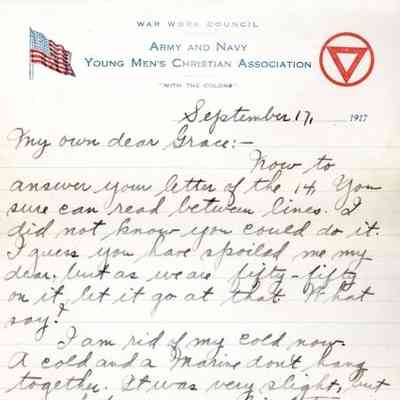 WAR WORK COUNCIL
ARMY AND NAVY
YOUNG MEN'S CHRISTIAN ASSOCIATION
"WITH THE COLORS"
September 17, 1917
My own dear Grace:-
Now to
answer your letter of the 14. You
sure can read between lines. I
did not know you could do it.
I guess you have spoiled me my
dear, but as we are fifty-fifty
on it, let it go at that. What
say?
I am rid of my cold now.
A cold and a Marine don't hang
together. It was very slight, but